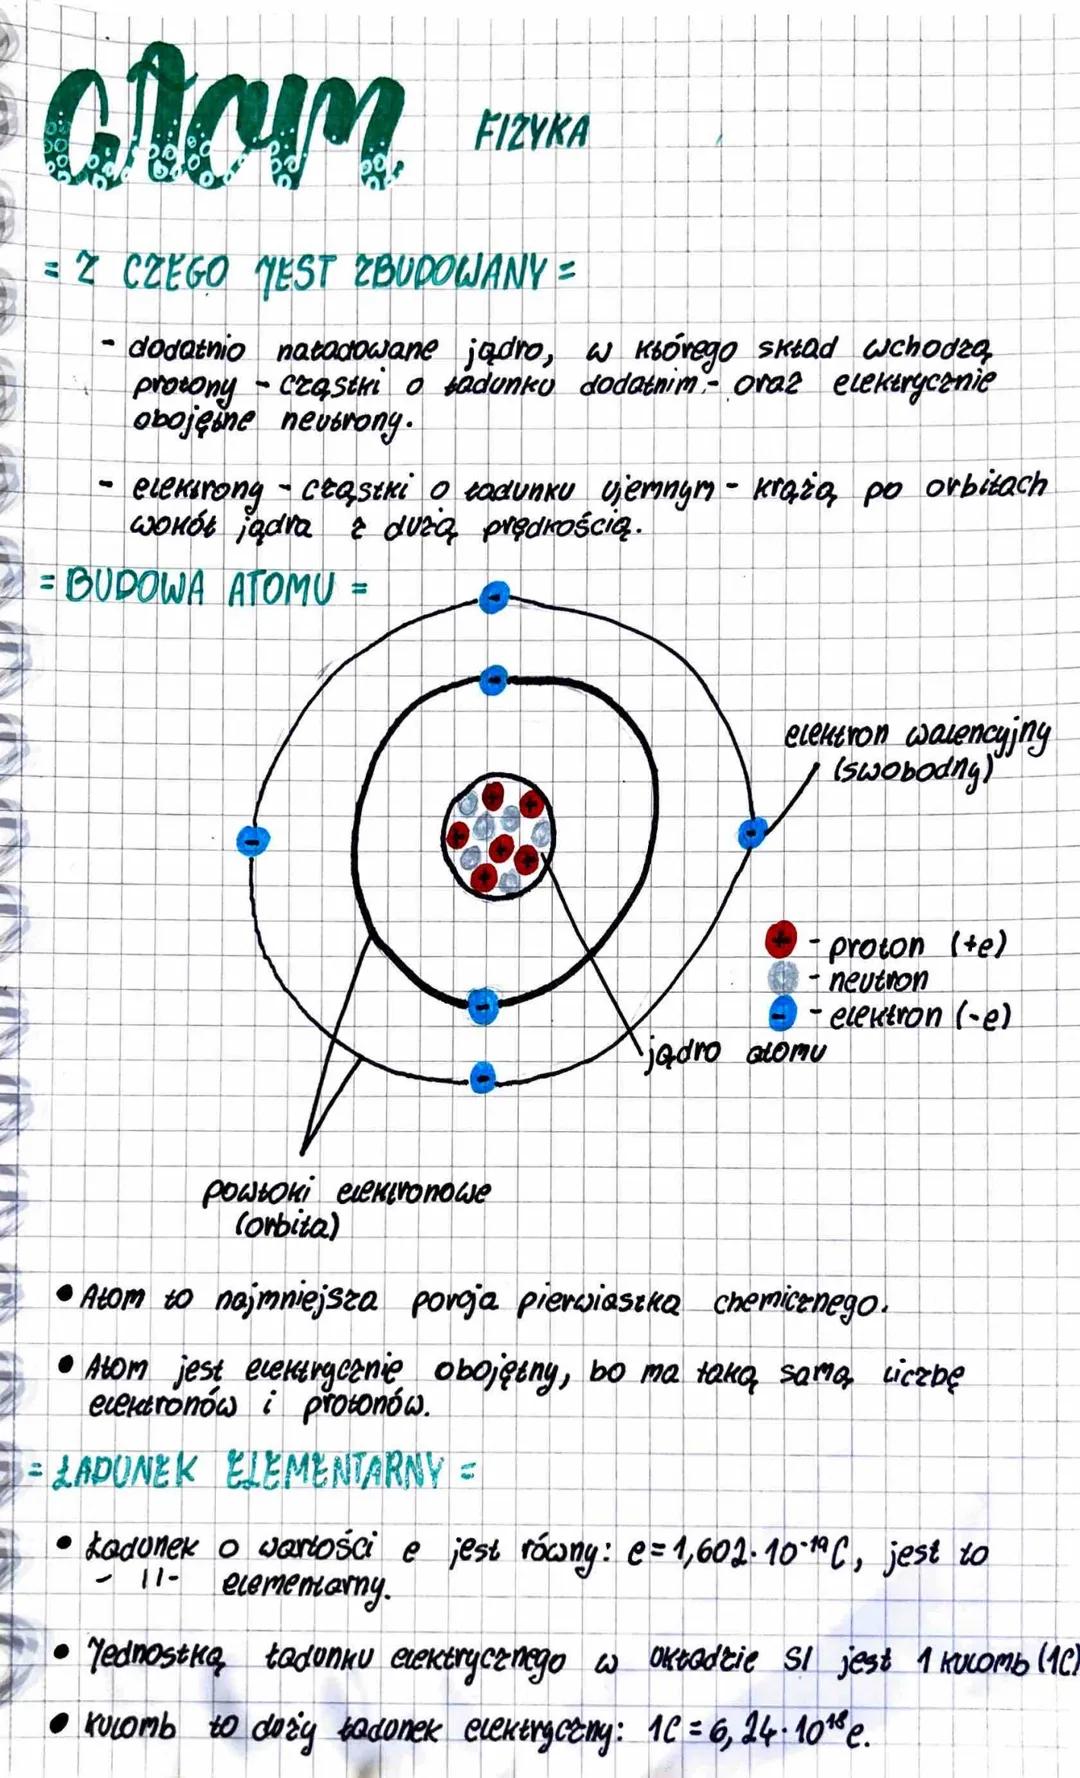 atom FIZYKA
= Z CZEGO JEST ZBUDOWANY =
- dodatnio naładowane jądro, w którego skład wchodzą
protony - cząstki o ładunku dodatnim - oraz elektrycznie
obojętne neutrony.
- elektrony - cząstki o ładunku ujemnym - krążą po orbitach
wokół jądra z dużą prędkością.
= BUDOWA ATOMU =
elektron walencyjny
(swobodny)
- proton (+e)
- neutron
- elektron (-e)
jądro atomu
powłoki elektronowe
(orbita)
• Atom to najmniejsza porcja pierwiastka chemicznego.
• Atom jest elektrycznie obojętny, bo ma taką samą liczbę
elektronów i protonów.
= ŁADUNEK ELEMENTARNY =
• Ładunek o wartości e jest równy: e = 1,602 · 10⁻¹⁹ C, jest to
- 11 - elementarny.
• Jednostką ładunku elektrycznego w układzie SI jest 1 kulomb (1C)
• Kulomb to duży ładunek elektryczny: 1C = 6,24 · 10¹⁸ e.